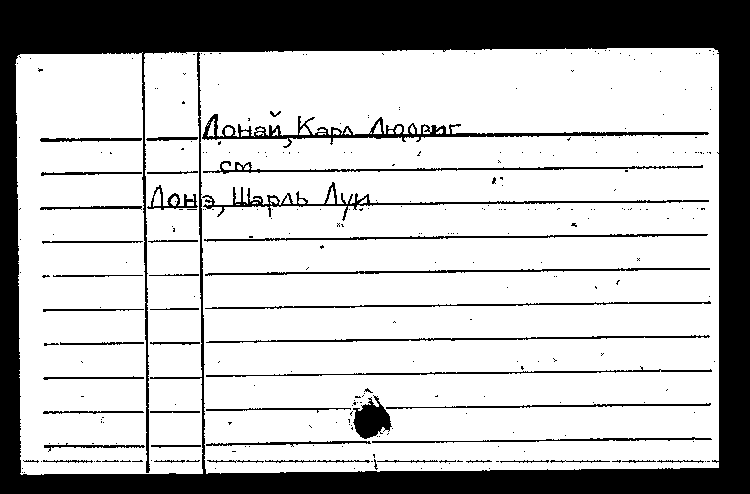 Лонай, Карл Людвиг
см.
Лонэ, Шарль Луи